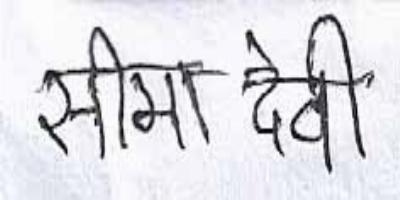 सीमा देवी